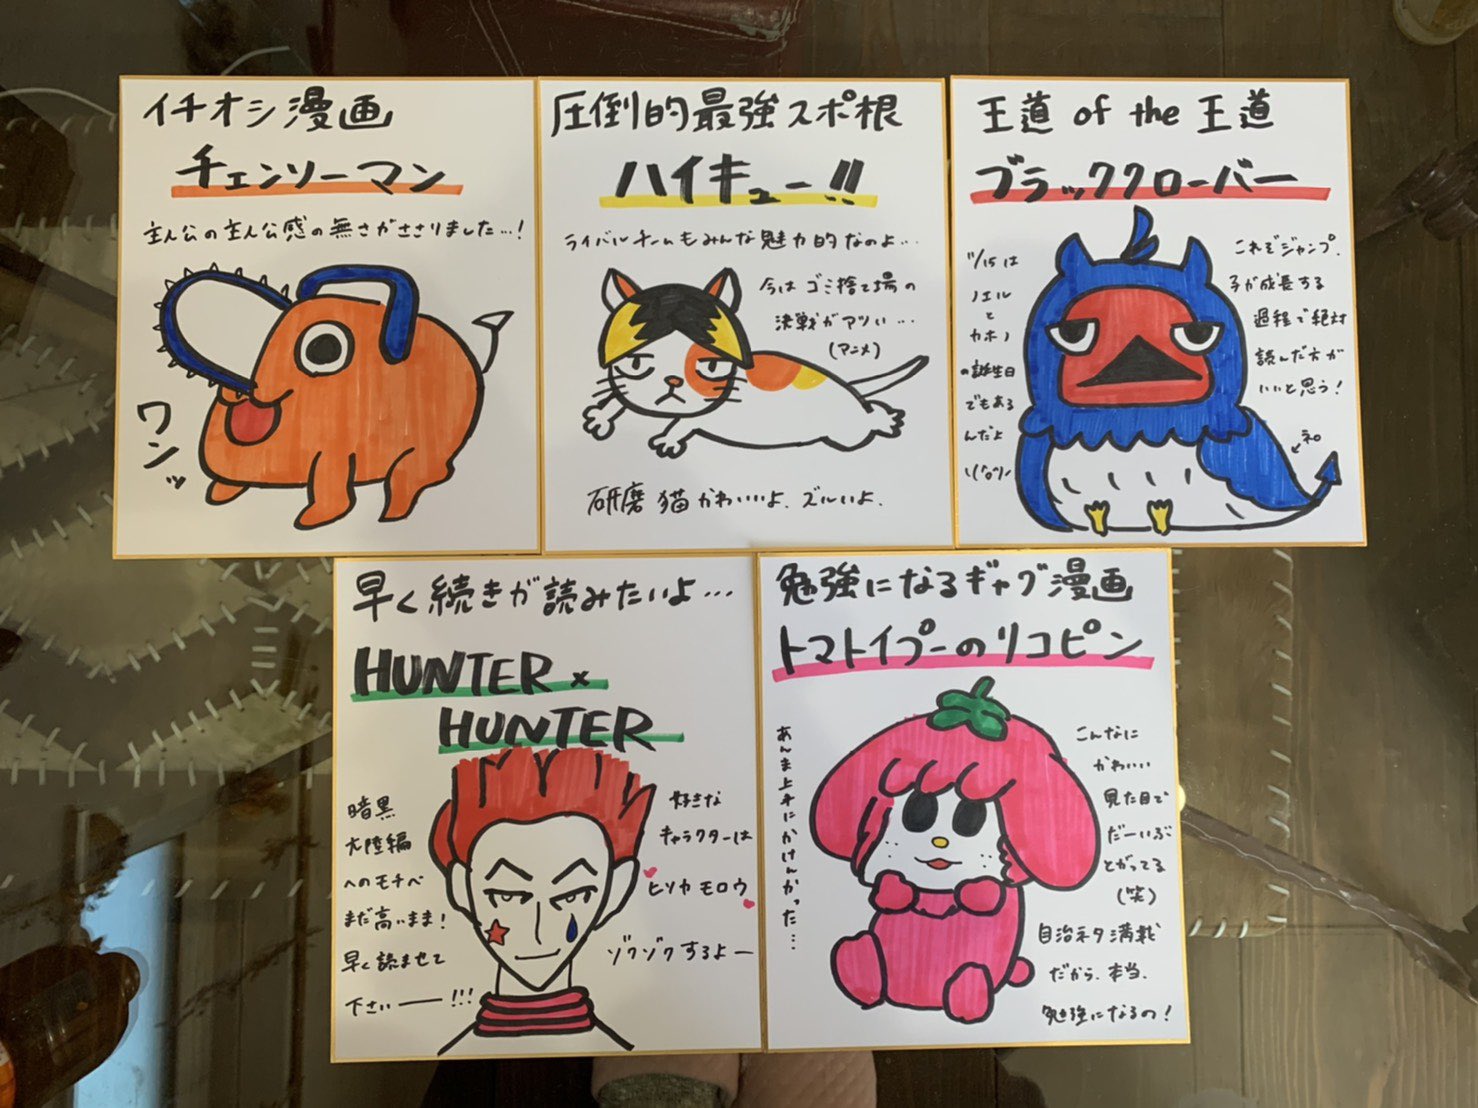 イチオシ漫画
チェンソーマン
主人公の主人公感の無さがささりました…!
ワンッ
圧倒的最強スポ根
ハイキュー!!
ライバルチームもみんな魅力的なのよ…
今はゴミ捨て場の
決戦がアツい…
(アニメ)
研磨猫かわいいよ、ズルいよ、
王道 of the 王道
ブラッククローバー
11/15は
ノエル
と
カホノ
の誕生日
でもある
んだよ
これぞジャンプ、
子が成長する
過程で絶対
読んだ方が
いいと思う!
ネロ
早く続きが読みたいよ…
HUNTER×
HUNTER
暗黒
大陸編
へのモチベ
まだ高いまま!
早く読ませて
下さいー!!!
好きな
キャラクターは
ヒソカ モロウ
ゾクゾクするよー
勉強になるギャグ漫画
トマトイプーのリコピン
あんま上手にかけんかった…
こんなに
かわいい
見た目で
だーいぶ
とがってる
(笑)
自治ネタ満載
だから、本当、
勉強になるの!